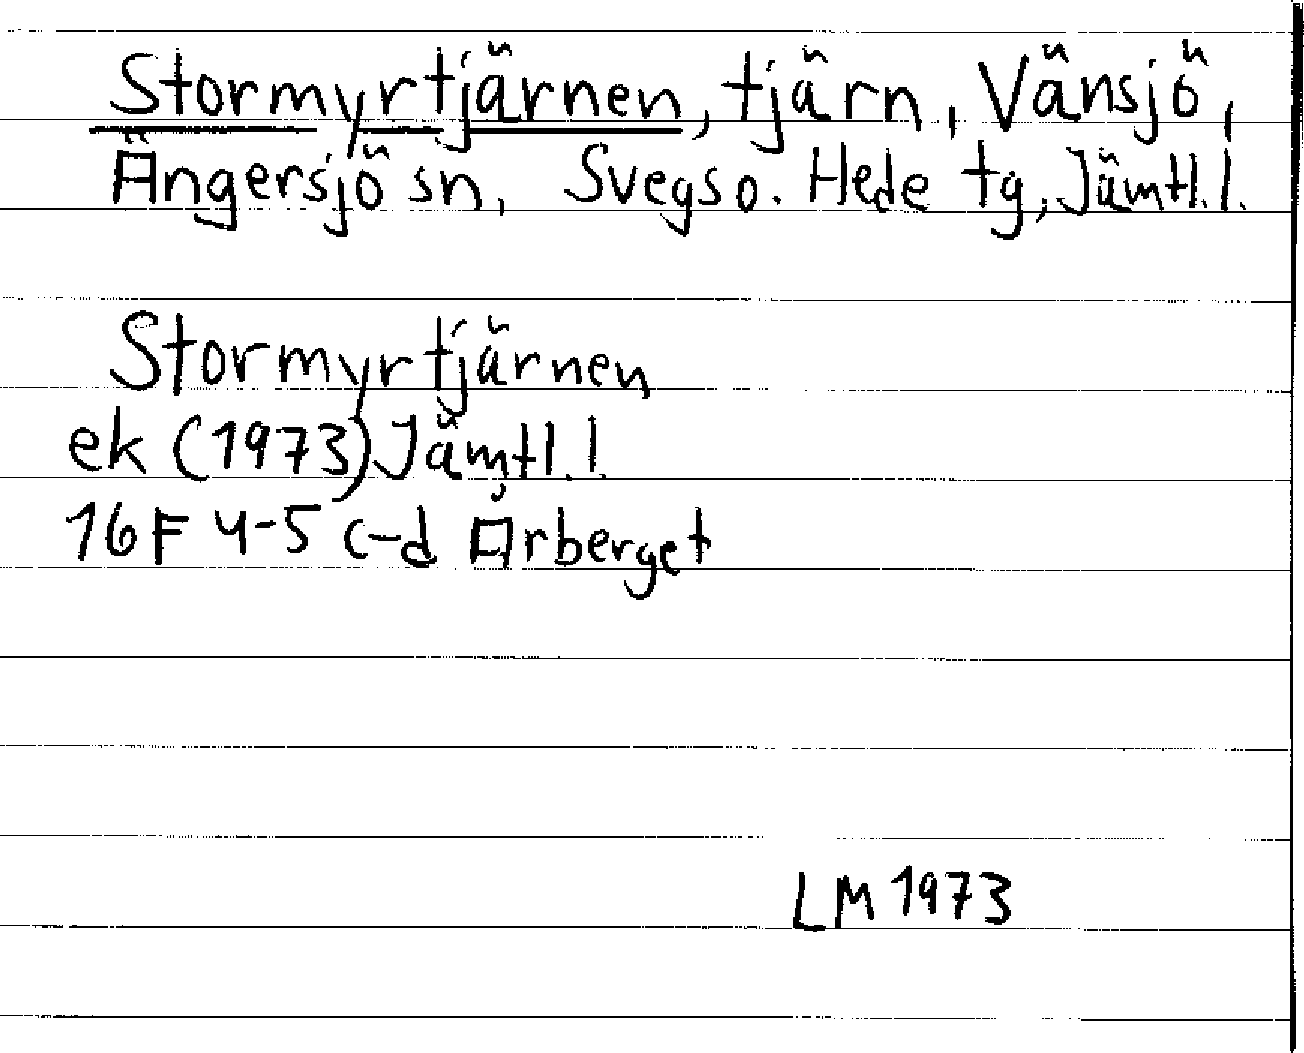 Stormyrtjärnen, tjärn, Vänsjö,
Ängersjö sn, Svegs o. Hede tg, Jämtl. l.
Stormyrtjärnen
ek (1973) Jämtl. l.
16 F 4-5 c-d Årberget
LM 1973